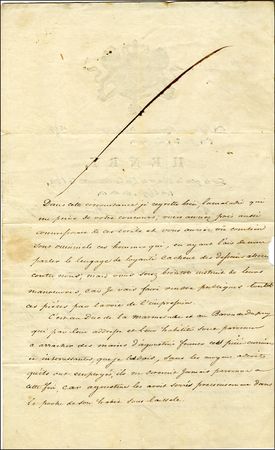 HENRY
Dans cette circonstance je regrette bien, la maladie qui
me prive de votre concours, vous auriez pris aussi
connaissance de ces écrits et vous auriez vu combien
sont criminels ces hommes qui, en ayant l'air de nous
parler le langage de loyauté cachent des
contre nous, mais vous serez bientôt instruit de leurs
manœuvres, car je vais faire rendre publiques toutes
ces pièces par la voie de l'impression
C'est au Duc de la marmelade et au Baron de
qui par leur adresse et leur habileté sont parvenus
à arracher des mains d'agoustine franco ces pièces curieuses
et intéressantes, que je les dois, sans les moyens adroits
qu'ils ont employés, ils ne seraient jamais parvenus à
cette fin car agoustine les avait serrés précieusement dans
la poche de son habit sous l'aisselle.